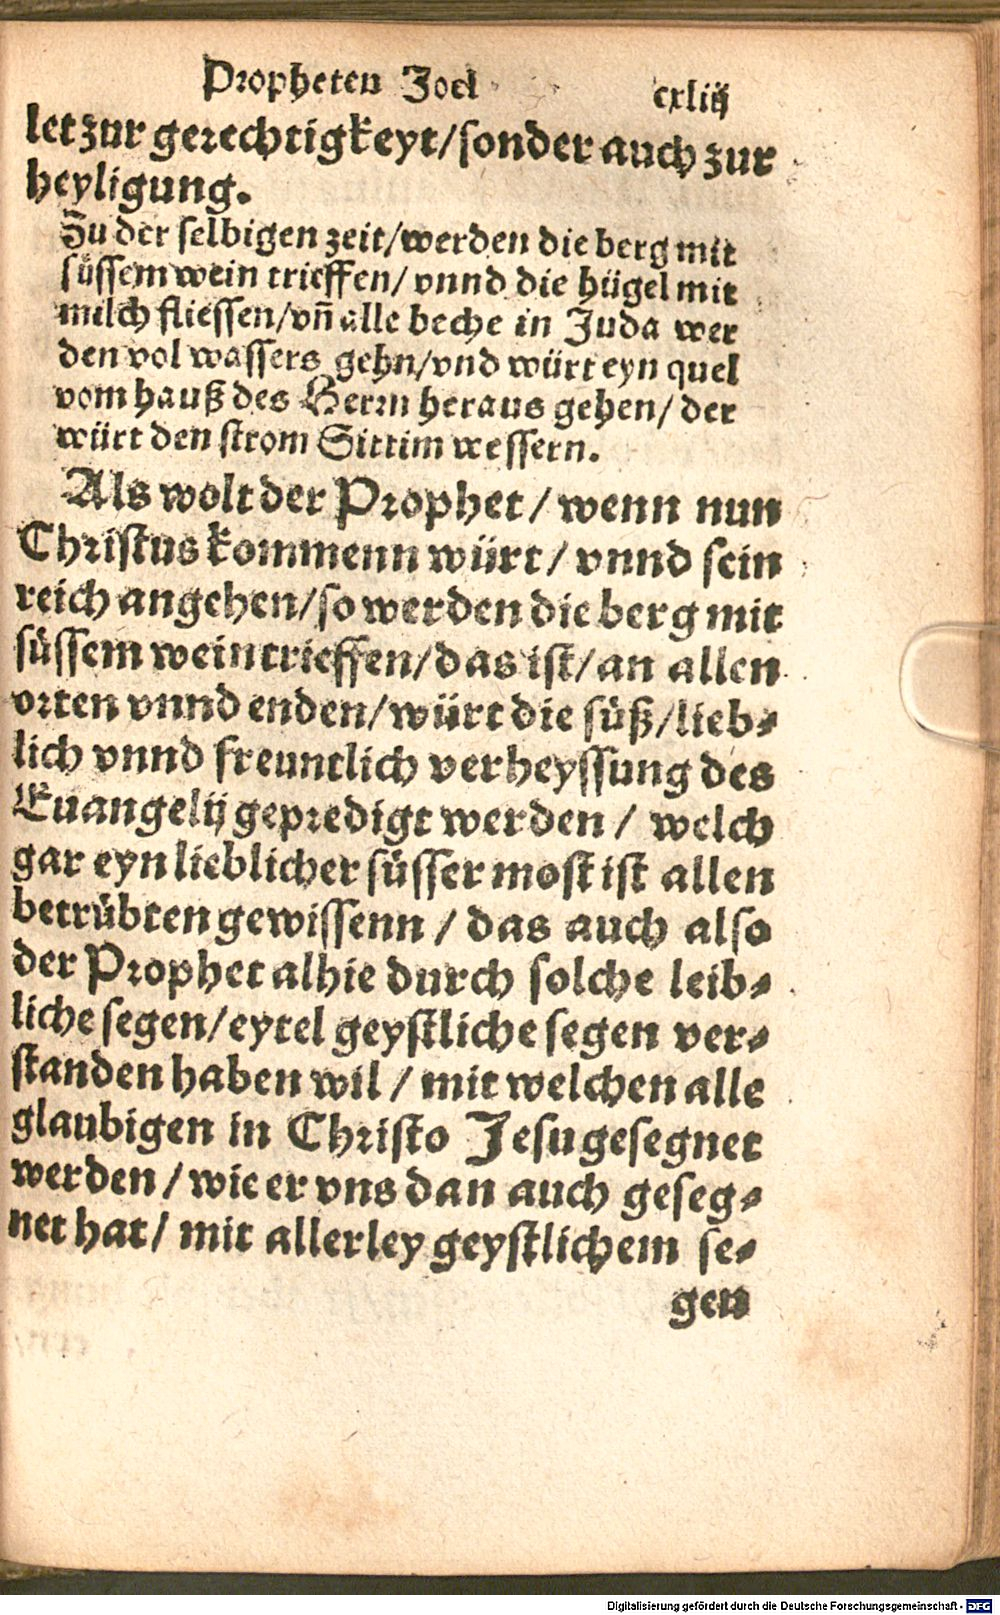 Propheten Joel cxliij
let zur gerechtigkeyt/sonder auch zur
heyligung.
Zu der selbigen zeit/werden die berg mit
süssem wein trieffen/ vnnd die hügel mit
milch fliessen/vn̄ alle beche in Juda wer
den vol wassers gehn/vnd würt eyn quel
vom hauß des Herrn heraus gehen/ der
würt den strom Sittim wessern.
Als wolt der Prophet / wenn nun
Christus kommenn würt/ vnnd sein
reich angehen/so werden die berg mit
süssem wein trieffen/das ist/an allen
orten vnnd enden/würt die süß/lieb-
lich vnnd freuntlich verheyssung des
Euangelij gepredigt werden / welch
gar eyn lieblicher süsser most ist allen
betrübten gewissenn / das auch also
der Prophet alhie durch solche leib-
liche segen/eytel geystliche segen ver-
standen haben wil / mit welchen alle
glaubigen in Christo Jesu gesegnet
werden / wie er vns dan auch geseg-
net hat/ mit allerley geystlichem se-
gen
Digitalisierung gefördert durch die Deutsche Forschungsgemeinschaft - DFG